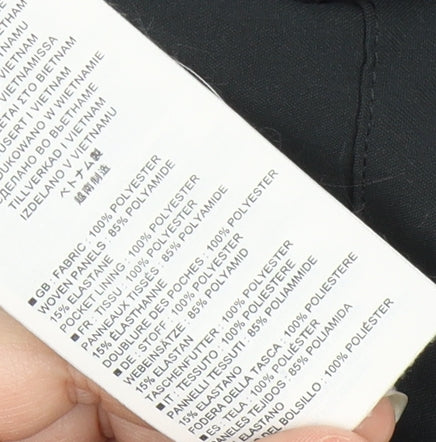 ETHAM
VIETNAM
VIETNAM
VIETNAMISSA
ΣΤΟ ΒΙΕΤΝΑΜ
VIETNAM
W WIETNAMIE
ВО ВЬЕТНАМЕ
TILLVERKAD I VIETNAM
IZDELANO V VIETNAMU
ベトナム製
越南制造
■ GB : FABRIC : 100% POLYESTER
WOVEN PANELS : 85% POLYAMIDE
15% ELASTANE
POCKET LINING : 100% POLYESTER
■ FR : TISSU : 100% POLYESTER
PANNEAUX TISSÉS : 85% POLYAMIDE
15% ÉLASTHANNE
DOUBLURE DES POCHES : 100% POLYESTER
■ DE : STOFF : 100% POLYESTER
WEBEINSÄTZE : 85% POLYAMID
15% ELASTAN
TASCHENFUTTER : 100% POLYESTER
■ IT : TESSUTO : 100% POLIESTERE
PANNELLI TESSUTI : 85% POLIAMMIDE
15% ELASTANO
FODERA DELLA TASCA : 100% POLIESTERE
■ ES : TELA : 100% POLIÉSTER
PANELES TEJIDOS : 85% POLIAMIDA
ELASTANO
DEL BOLSILLO : 100% POLIÉSTER